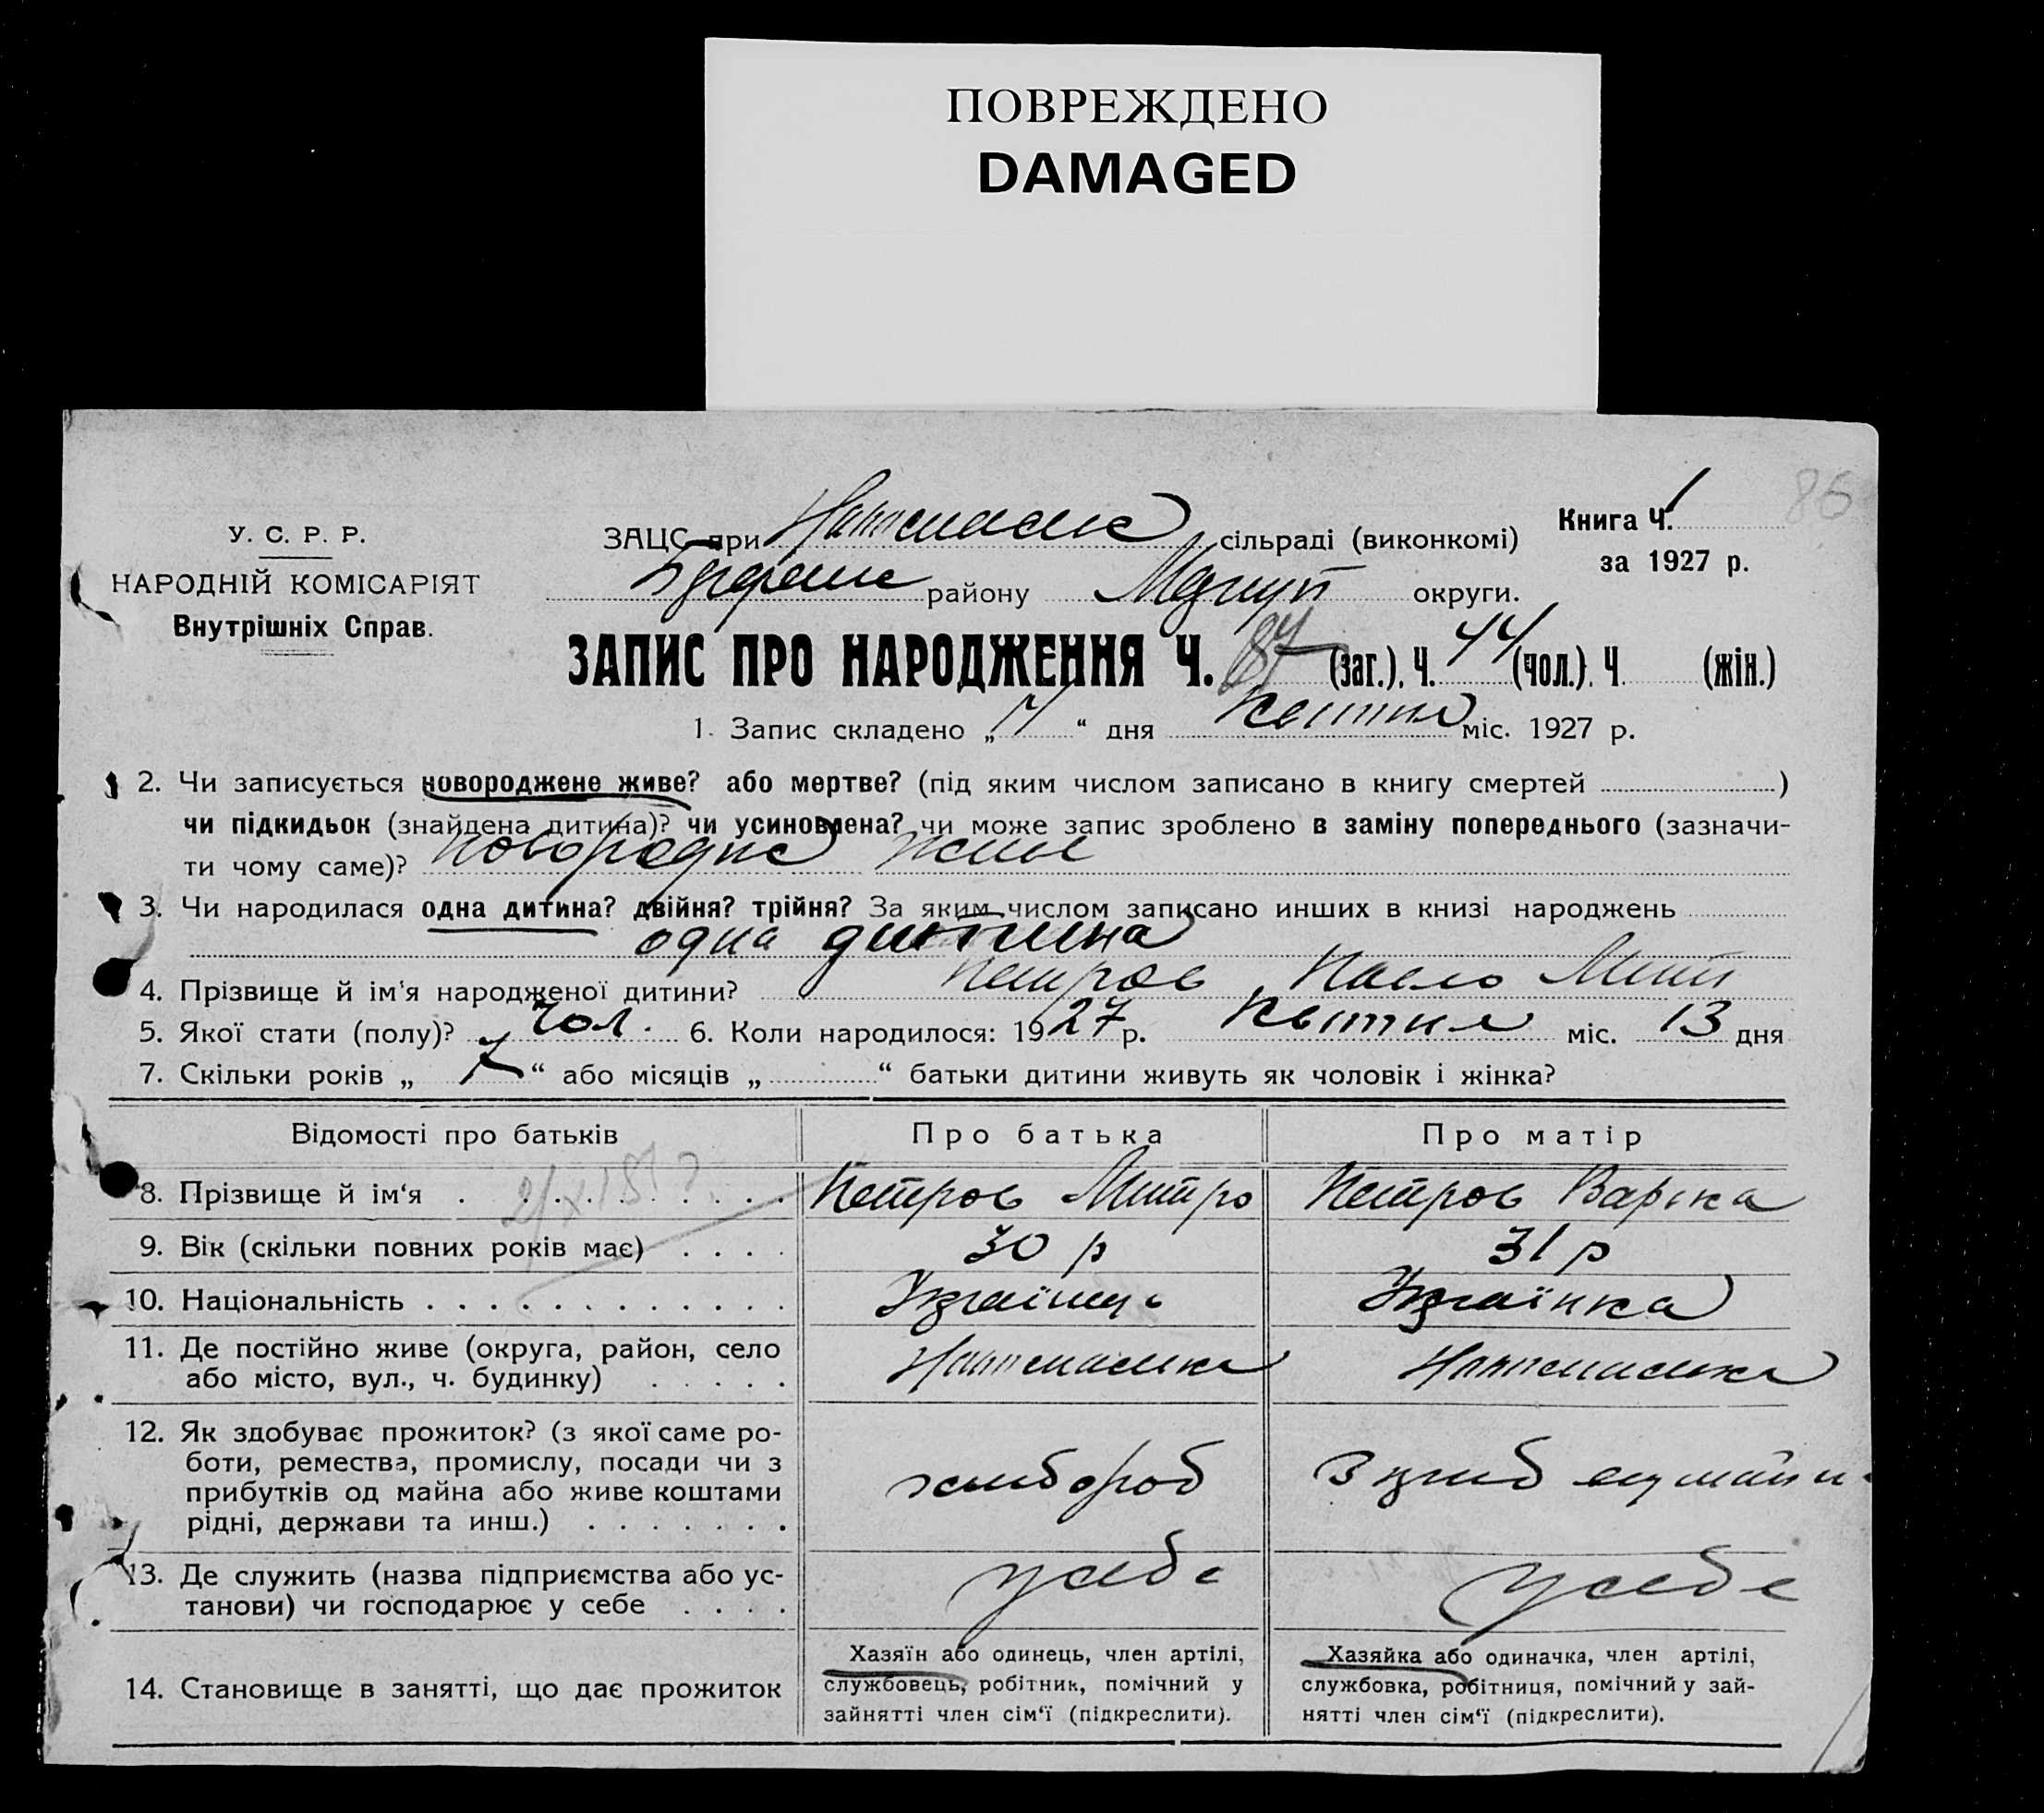 ПОВРЕЖДЕНО
DAMAGED
86
Книга Ч. 1
за 1927 р.
У. С. Р. Р.
НАРОДНІЙ КОМІСАРІЯТ
Внутрішніх Справ.
ЗАЦС при сільраді (виконкомі)
району округи.
ЗАПИС ПРО НАРОДЖЕННЯ Ч. 87 (заг.). Ч. 44 (чол.). Ч. (жін.)
1. Запис складено „ “ дня Квітня міс. 1927 р.
2. Чи записується новороджене живе? або мертве? (під яким числом записано в книгу смертей )
чи підкидьок (знайдена дитина)? чи усиновлена? чи може запис зроблено в заміну попереднього (зазначи-
ти чому саме)? живе
3. Чи народилася одна дитина? двійня? трійня? За яким числом записано инших в книзі народжень
одна дитина
4. Прізвище й ім'я народженої дитини? Петров Павло Мит
5. Якої стати (полу)? Чол. 6. Коли народилося: 1927 р. Квітня міс. 13 дня
7. Скільки років „ 7 “ або місяців „ “ батьки дитини живуть як чоловік і жінка?
Відомості про батьків Про батька Про матір
8. Прізвище й ім‘я Петров Митро Петров Варька
9. Вік (скільки повних років має) 30 р 31 р
10. Національність Українець Українка
11. Де постійно живе (округа, район, село
або місто, вул., ч. будинку)
12. Як здобуває прожиток? (з якої саме ро-
боти, ремества, промислу, посади чи з
прибутків од майна або живе коштами
рідні, держави та инш.) хлибороб
13. Де служить (назва підприємства або ус-
танови) чи господарює у себе у себе у себе
14. Становище в занятті, що дає прожиток
Хазяїн або одинець, член артілі,
службовець, робітник, помічний у
зайнятті член сім‘ї (підкреслити).
Хазяйка або одиначка, член артілі,
службовка, робітниця, помічний у зай-
нятті член сім‘ї (підкреслити).